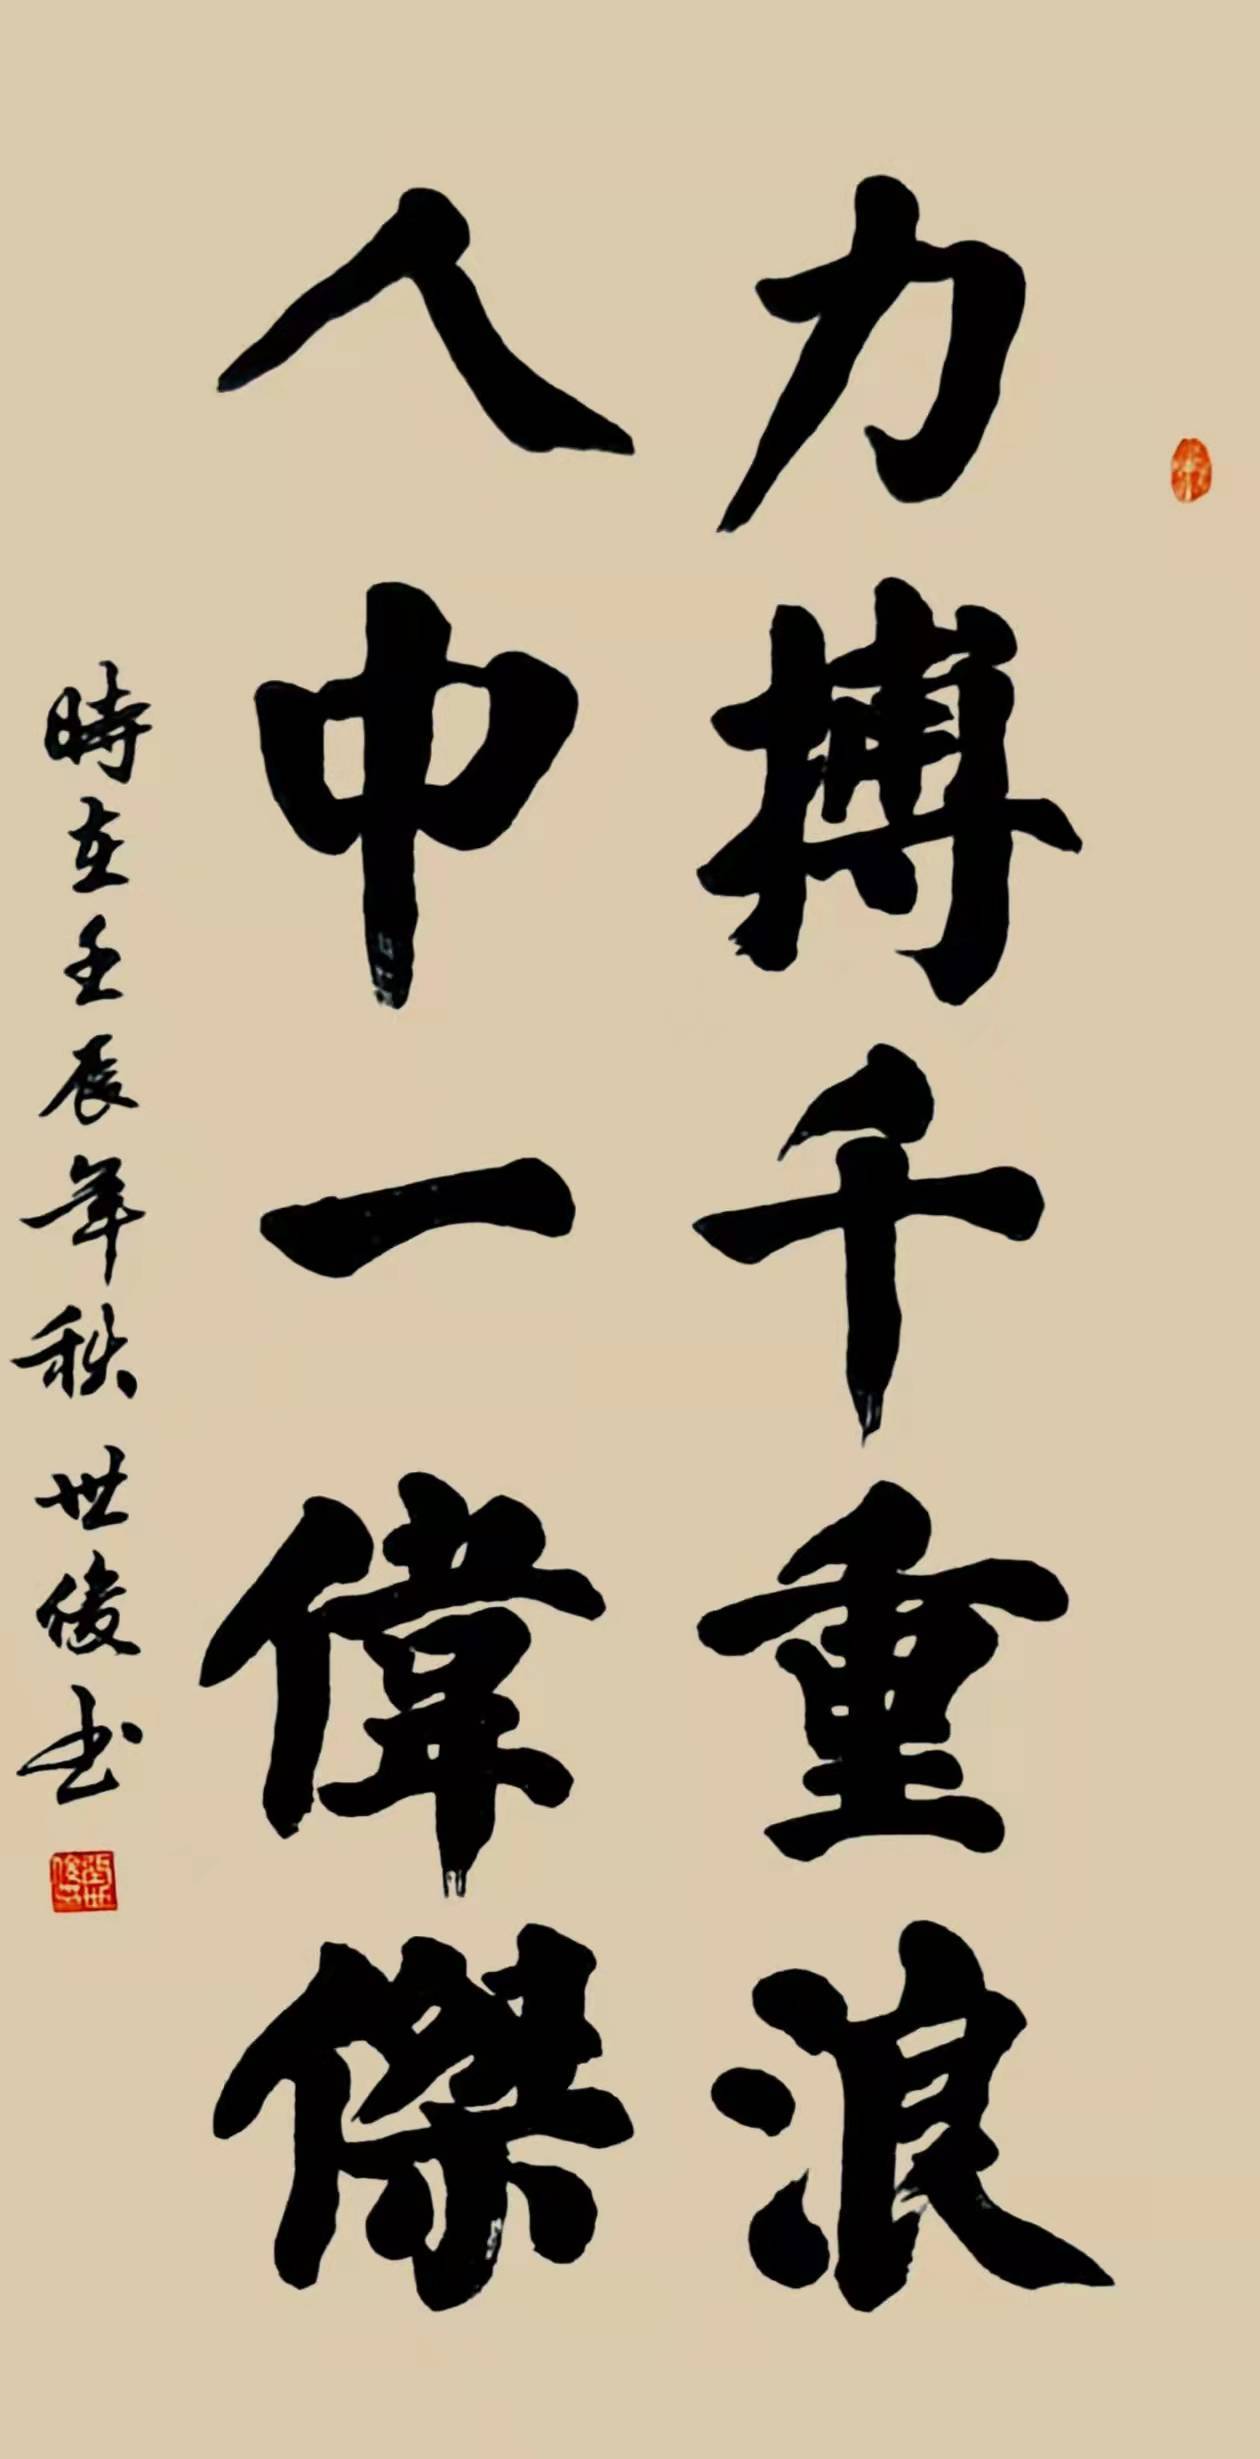 力搏千重浪
人中一偉傑
時在壬辰年秋世俊书